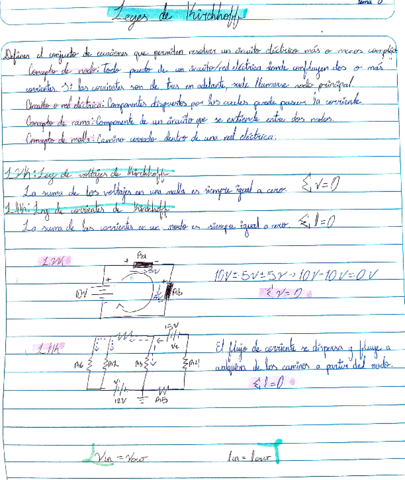 Leyes de Kirchhoff
Definen el conjunto de ecuaciones que permiten resolver un circuito eléctrico más o menos complejo
Concepto de nodo: Todo punto de un circuito/red eléctrica donde confluyen dos o más
corrientes. Si las corrientes son de tres en adelante, suele llamarse nodo principal.
Circuito o red eléctrica: Componentes dispuestos por los cuales puede pasar la corriente.
Concepto de rama: Componente de un circuito que se extiende entre dos nodos.
Concepto de malla: Camino cerrado dentro de una red eléctrica.
LVK: Ley de voltajes de Kirchhoff
La suma de los voltajes en una malla es siempre igual a cero. Σ V=0
Ley de corrientes de Kirchhoff
La suma de las corrientes en un nodo es siempre igual a cero. Σ I=0
LVK
5V
10V
10V-5V-5V→10V-10V=0V
Σ V=0
15V
El flujo de corriente se dispersa y fluye a
de los caminos a partir del nodo.
Σ I=0
12V